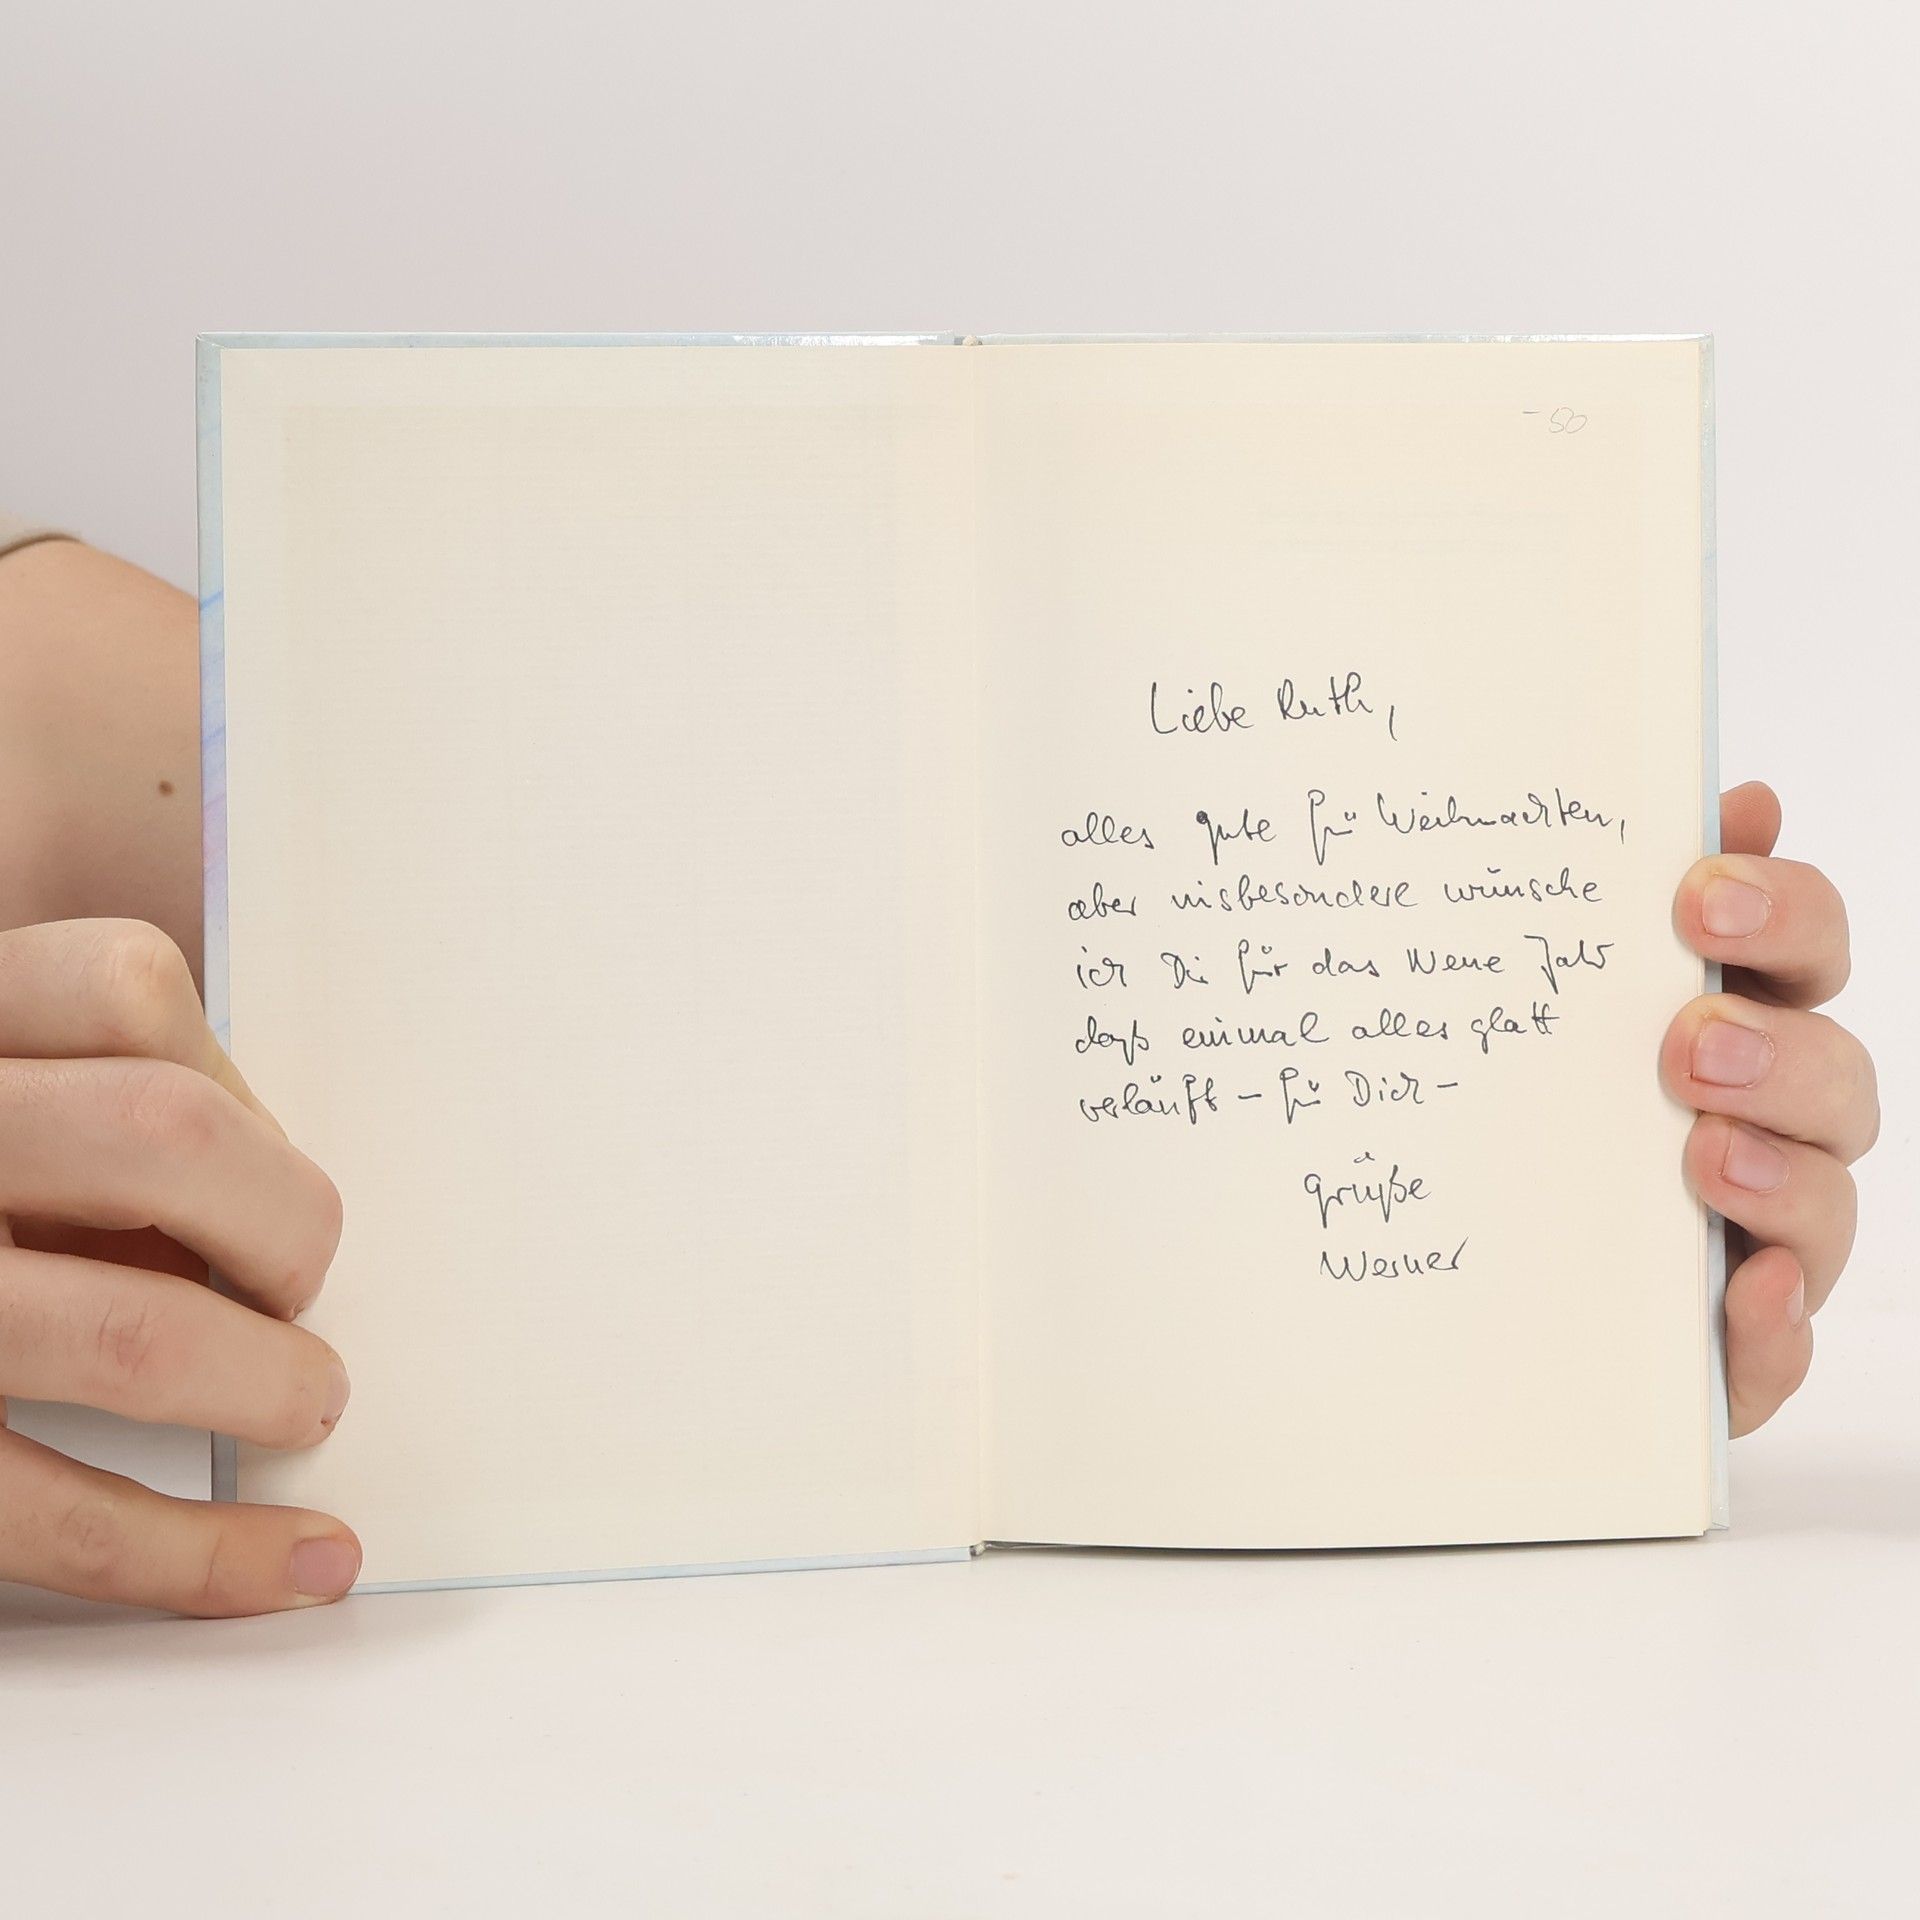 -50
Liebe Ruth,
alles gute für Weihnachten,
aber insbesondere wünsche
ich Dir für das Neue Jahr
daß einmal alles glatt
verläuft – für Dich –
Grüße
Werner